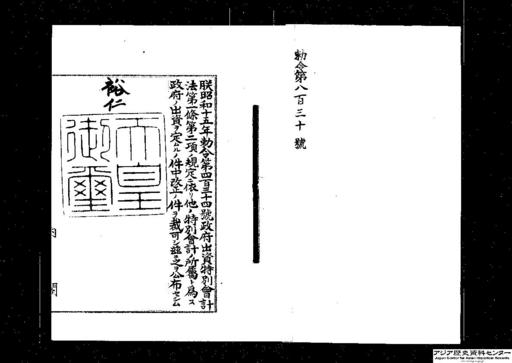 勅令第八百三十號
朕昭和十五年勅令第四百三十四號政府出資特別會計
法第一條第二項ノ規定ニ依リ他ノ特別會計ノ所屬ト爲ス
政府ノ出資ヲ定ムルノ件中改正ノ件ヲ裁可シ茲ニ之ヲ公布セシム
裕仁
天皇
御璽
内閣
アジア歴史資料センター
Japan Center for Asian Historical Records